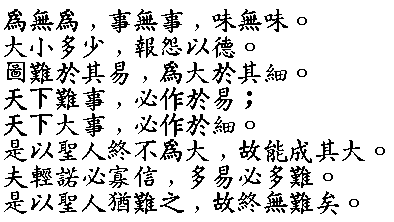 爲無爲﹐事無事﹐味無味。
大小多少﹐報怨以德。
圖難於其易﹐爲大於其細。
天下難事﹐必作於易；
天下大事﹐必作於細。
是以聖人終不爲大﹐故能成其大。
夫輕諾必寡信﹐多易必多難。
是以聖人猶難之﹐故終無難矣。